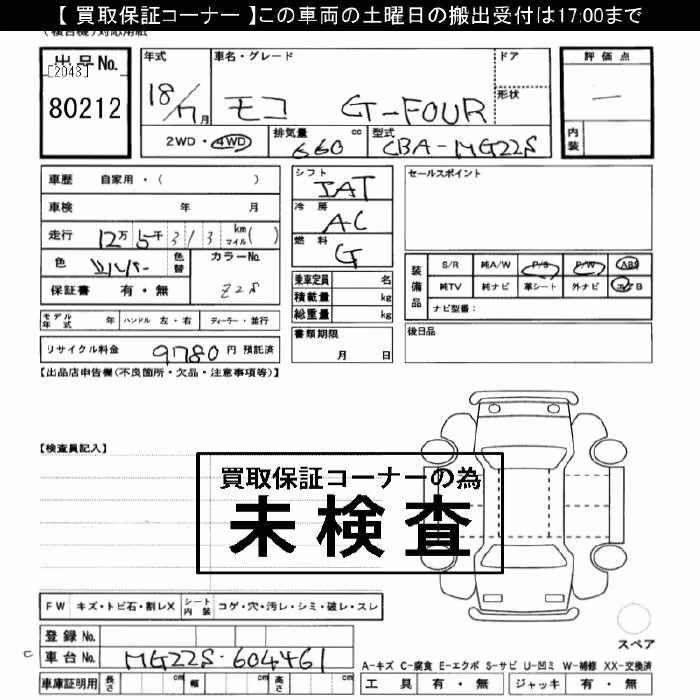 【 買取保証コーナー 】この車両の土曜日の搬出受付は17:00まで
出品No.
[2043]
80212
年式
18/7月
車名・グレード
モコ G-FOUR
ドア
形状
評価点
—
内装
2WD・4WD
排気量 660 cc
型式 CBA-MG22S
車歴 自家用・( )
車検 年 月
走行 12万 5千 313 km マイル( )
色 シルバー 色替
カラーNo. Z2S
保証書 有・無
シフト IAT
冷房 AC
燃料 G
乗車定員 名
積載量 kg
総重量 kg
セールスポイント
装備品
S/R 純A/W P/S P/W ABS
純TV 純ナビ 革シート 外ナビ エアB
ナビ型番:
モデル年式 年 ハンドル 左・右 ディーラー・並行
書類期限 月 日
後日品
リサイクル料金 9780 円 預託済
【出品店申告欄(不良箇所・欠品・注意事項等)】
【検査員記入】
買取保証コーナーの為
未検査
FW キズ・トビ石・割レX シート内装 コゲ・穴・汚レ・シミ・破レ・スレ
スペア
登録No.
C 車台No. MG22S-604461
A-キズ C-腐食 E-エクボ S-サビ U-凹ミ W-補修 XX-交換済
車庫証明用 長さ cm 幅 cm 高さ cm
工具 有・無 ジャッキ 有・無